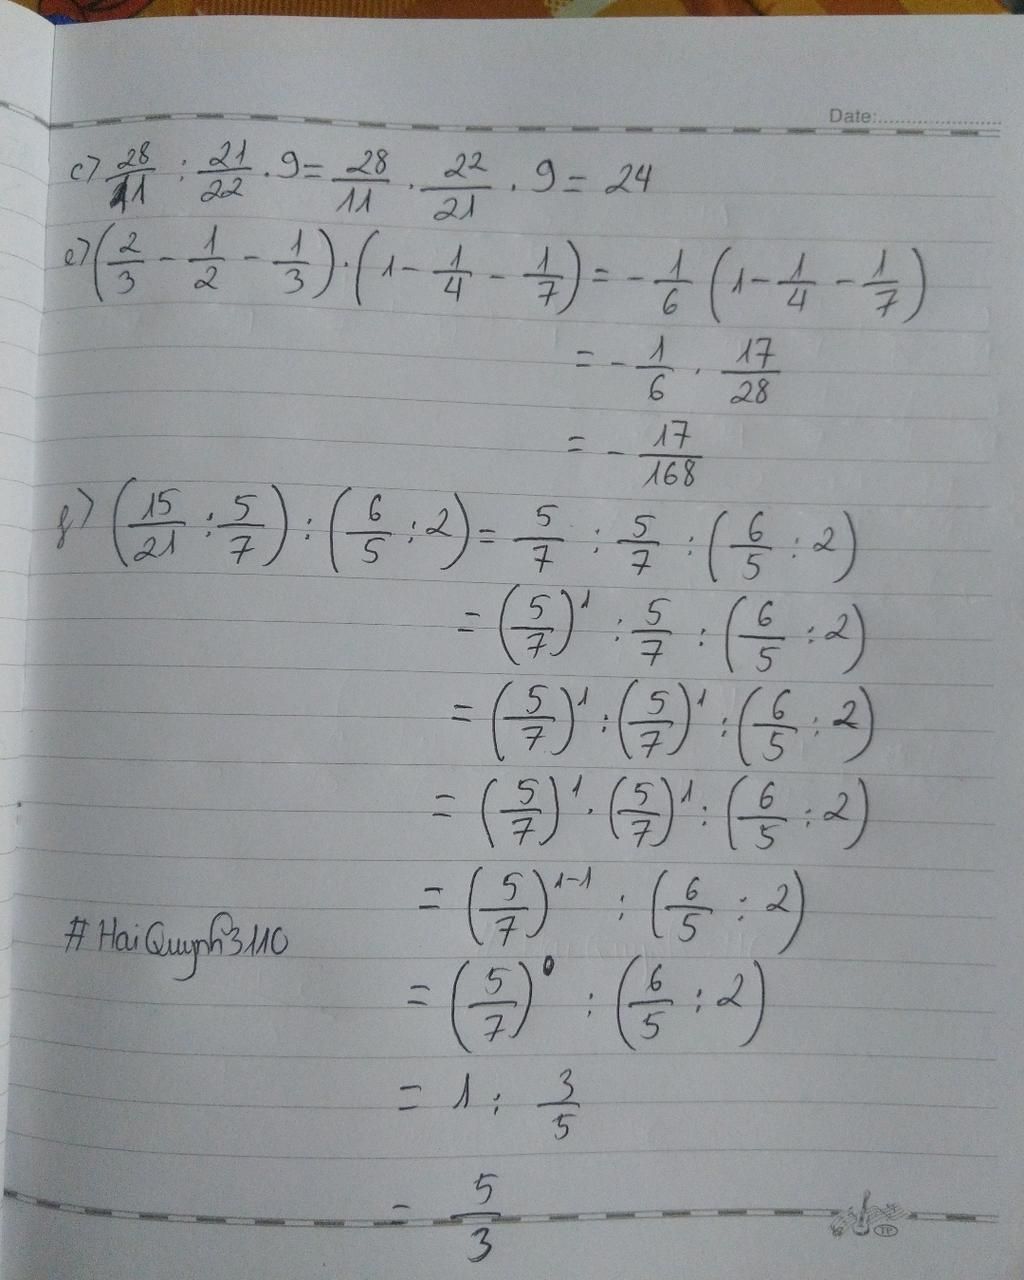 Date:
c) 28/11 : 21/22 . 9 = 28/11 . 22/21 . 9 = 24
e) (2/3 - 1/2 - 1/3) . (1 - 1/4 - 1/7) = - 1/6 (1 - 1/4 - 1/7)
= - 1/6 . 17/28
= - 17/168
f) (15/21 : 5/7) : (6/5 : 2) = 5/7 : 5/7 : (6/5 : 2)
= (5/7)^1 : 5/7 : (6/5 : 2)
= (5/7)^1 : (5/7)^1 : (6/5 : 2)
= (5/7)^1 . (5/7)^1 : (6/5 : 2)
= (5/7)^1-1 : (6/5 : 2)
#HaiQuynh3110
= (5/7)^0 : (6/5 : 2)
= 1 : 3/5
= 5/3
TP